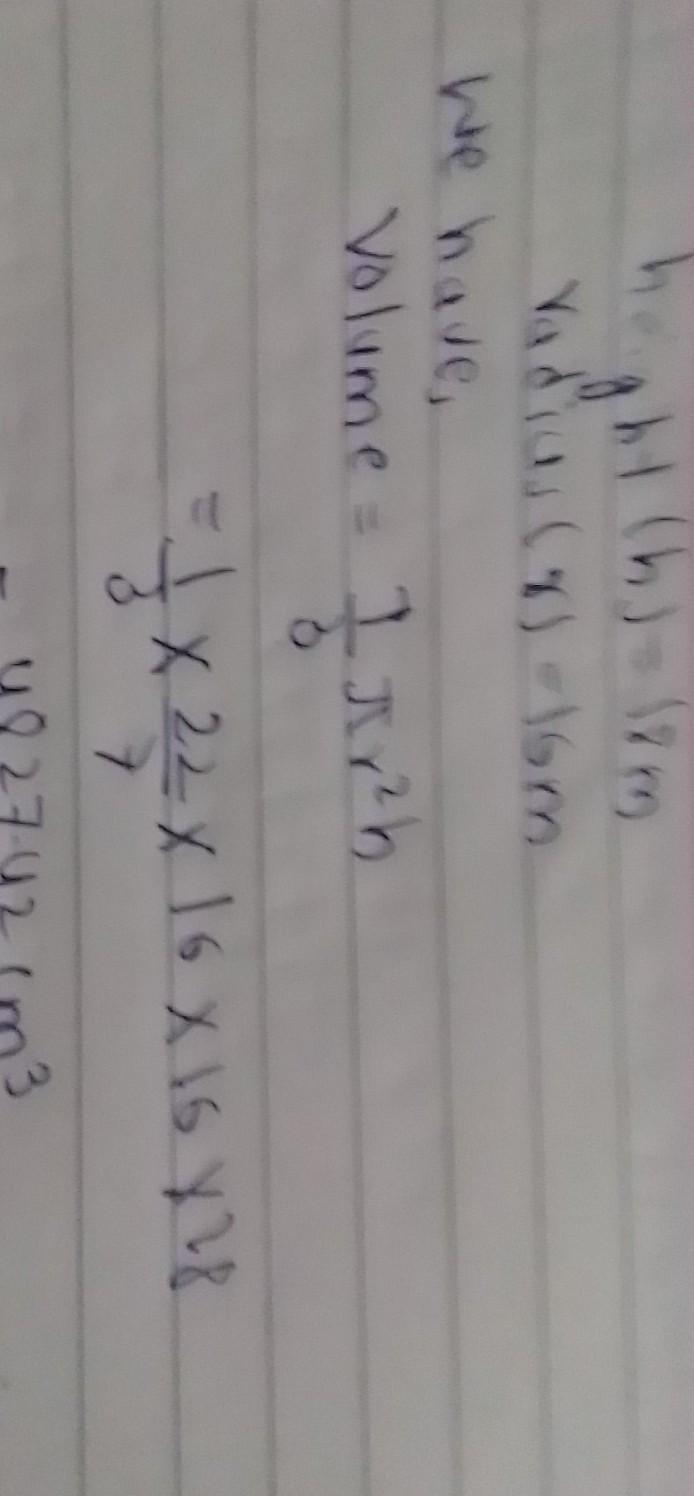 height (h) = 18m
radius (r) = 16m
We have,
Volume = 1/3 πr²h
= 1/3 x 22/7 x 16 x 16 x 18
= 4827.42 cm³